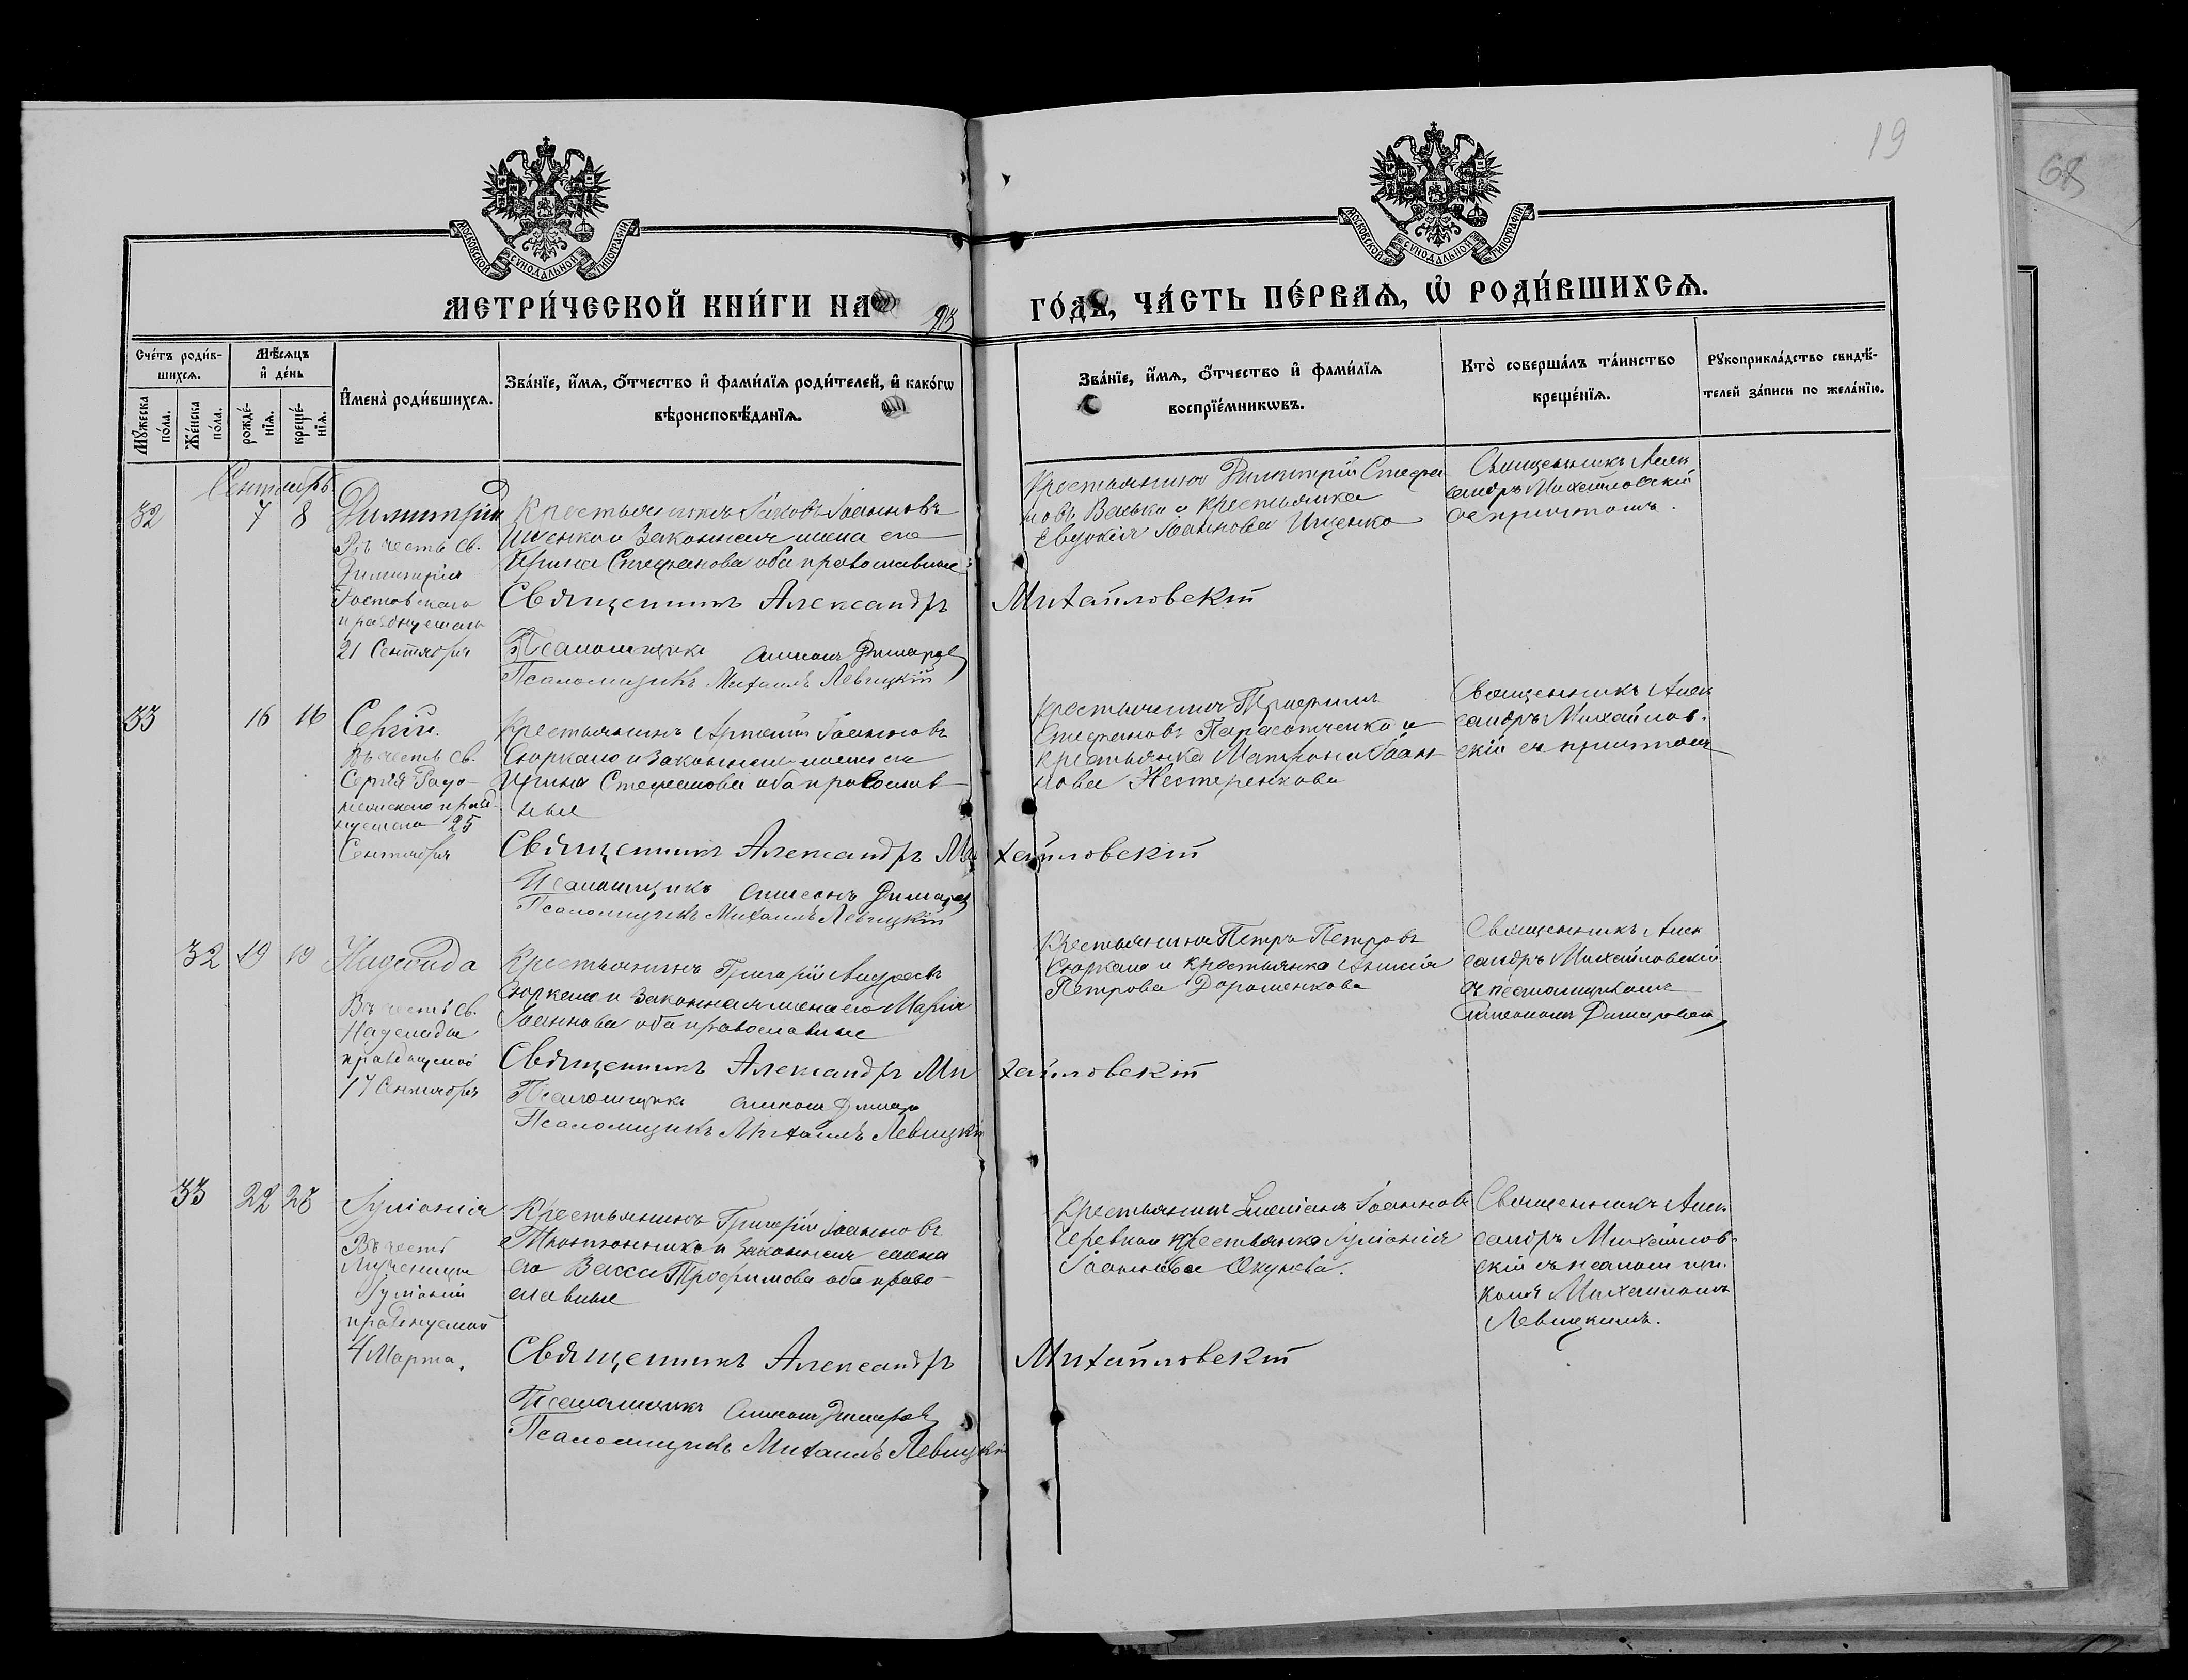 19
68
МОСКОВСКОЙ СѴНОДАЛЬНОЙ ТИПОГРАФІИ
МОСКОВСКОЙ СѴНОДАЛЬНОЙ ТИПОГРАФІИ
МЕТРИ́ЧЕСКОЙ КНИ́ГИ НА
ГО́ДЪ, ЧА́СТЬ ПЕ́РВАѦ, Ѡ҆ РОДИ́ВШИХСѦ.
Сче́тъ роди́в-
шихсѧ.
Мꙋ́жеска по́ла.
Же́нска по́ла.
Мѣ́сѧцъ
и҆ де́нь
рожде́-
нїѧ.
креще́-
нїѧ.
И҆мена̀ роди́вшихсѧ.
Зва́нїе, и҆́мѧ, ѻ҆́тчество и҆ фами́лїѧ роди́телей, и҆ како́гѡ
вѣроисповѣ́данїѧ.
Зва́нїе, и҆́мѧ, ѻ҆́тчество и҆ фами́лїѧ
воспрїе́мникѡвъ.
Кто̀ соверша́лъ та́инство
креще́нїѧ.
Рꙋкоприкла́дство свидѣ́-
телей за́писи по жела́нїю.
Сентябрь
32 7 8
Димитрій
Въ честь Св.
Димитрія
Ростовскаго
празднуемаго
21 Сентября
Крестьянинъ Іаковъ Іоанновъ
Ищенко и Законная жена его
Ирина Стефанова оба православные
Священникъ Александръ Михайловскій
Псаломщикъ Симеонъ
Псаломщикъ Михаилъ Левицкій
Крестьянинъ Димитрій Стефа
новъ и крестьянка
Евдокія Іоаннова Ищенко
Священникъ Алек
сандръ Михайловскій
съ причтомъ.
33 16 16
Сергій.
Въ честь Св.
Сергія Радо-
нежскаго празд-
нуемаго 25
Сентября
Крестьянинъ Іоанновъ
и законная жена его
Ирина Стефанова оба православ-
ные
Священникъ Александръ Михайловскій
Псаломщикъ Симеонъ
Псаломщикъ Михаилъ Левицкій
Крестьянинъ
Стефановъ и
крестьянка Матрона Іоан-
нова Нестеренкова
Священникъ Алек
сандръ Михайлов-
скій съ причтомъ
32 19 19
Надежда
Въ честь Св.
Надежды
празднуемой
17 Сентября
Крестьянинъ Григорій Андреевъ
и Законная жена его Марія
Іоаннова оба православные
Священникъ Александръ Михайловскій
Псаломщикъ Симеонъ
Псаломщикъ Михаилъ Левицкій
Крестьянинъ Петръ Петровъ
и крестьянка
Петрова Дорошенкова
Священникъ Алек
сандръ Михайловскій
съ псаломщикомъ
Симеономъ
33 22 23
Іуліанія
Въ честь
Мученицы
Іуліаніи
празднуемой
4 Марта.
Крестьянинъ Григорій Іоанновъ
и Законная жена
его Васса Трофимова оба право-
славные
Священникъ Александръ Михайловскій
Псаломщикъ Симеонъ
Псаломщикъ Михаилъ Левицкій
Крестьянинъ Іоанновъ
крестьянка Іуліанія
Іоаннова
Священникъ Алек
сандръ Михайлов-
скій съ псаломщи-
комъ Михаиломъ
Левицкимъ.